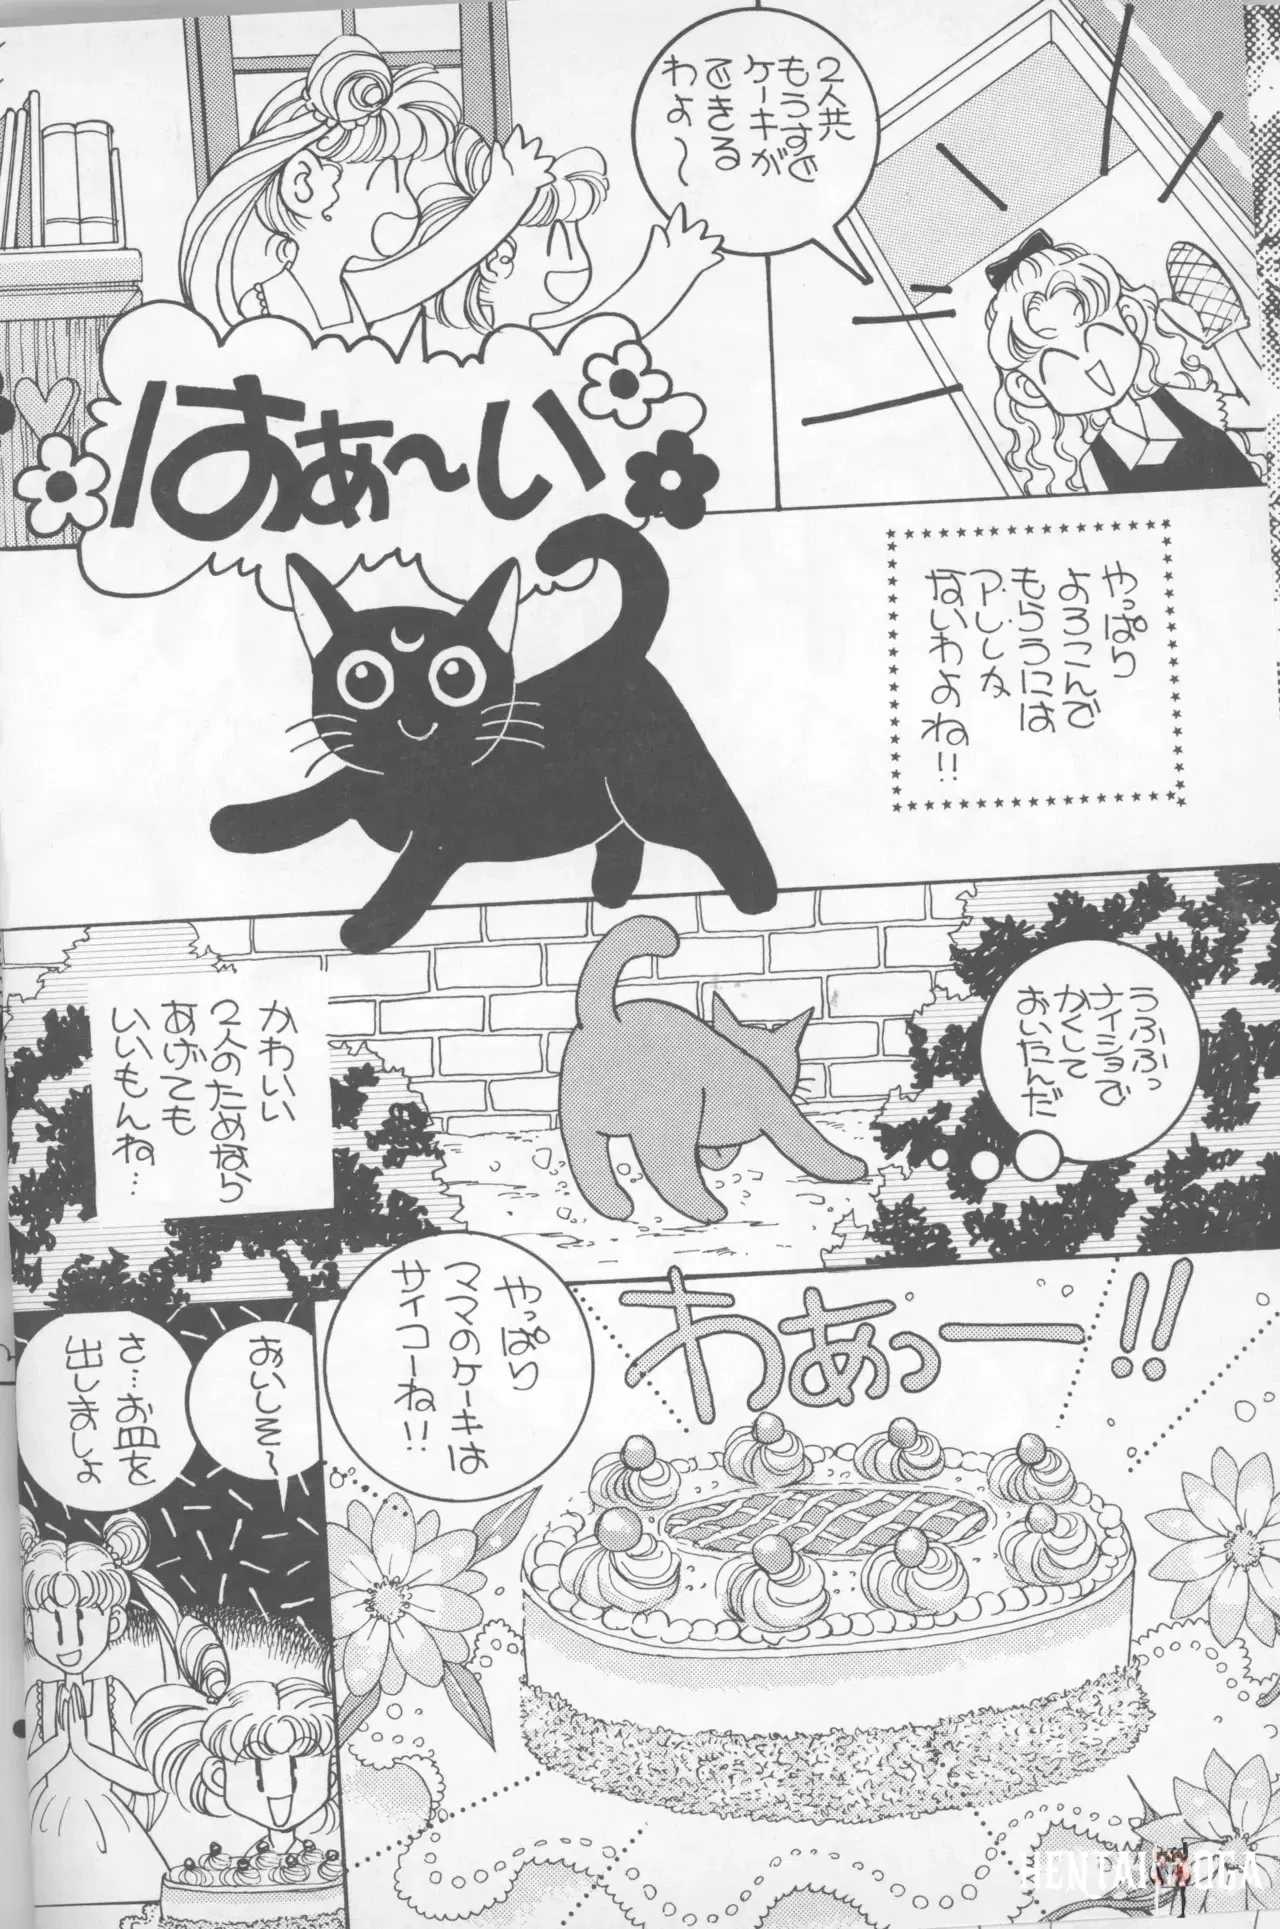 2人共
もうすぐ
ケーキが
できる
わよ〜
はぁ〜い
やっぱり
よろこんで
もらうには
アレしか
ないわよね!!
うふふっ
ナイショで
かくして
おいたんだ
かわいい
2人のためなら
あげても
いいもんね…
わあっー!!
やっぱり
ママのケーキは
サイコーね!!
おいしそ〜
さ…お皿を
出しましょ